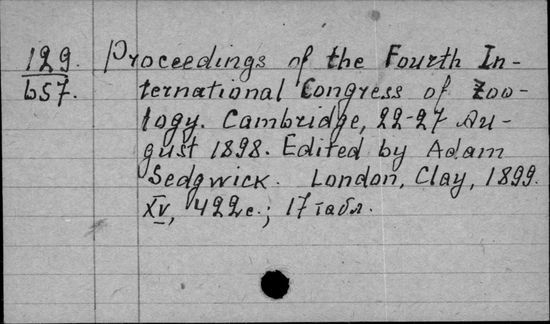 129. Proceedings of the Fourth In-
b57. ternational Congress of Zoo-
logy. Cambridge, 22-27 Au-
gust 1898. Edited by Adam
Sedgwick. London, Clay, 1899.
XV, 422 с.; 17 табл.